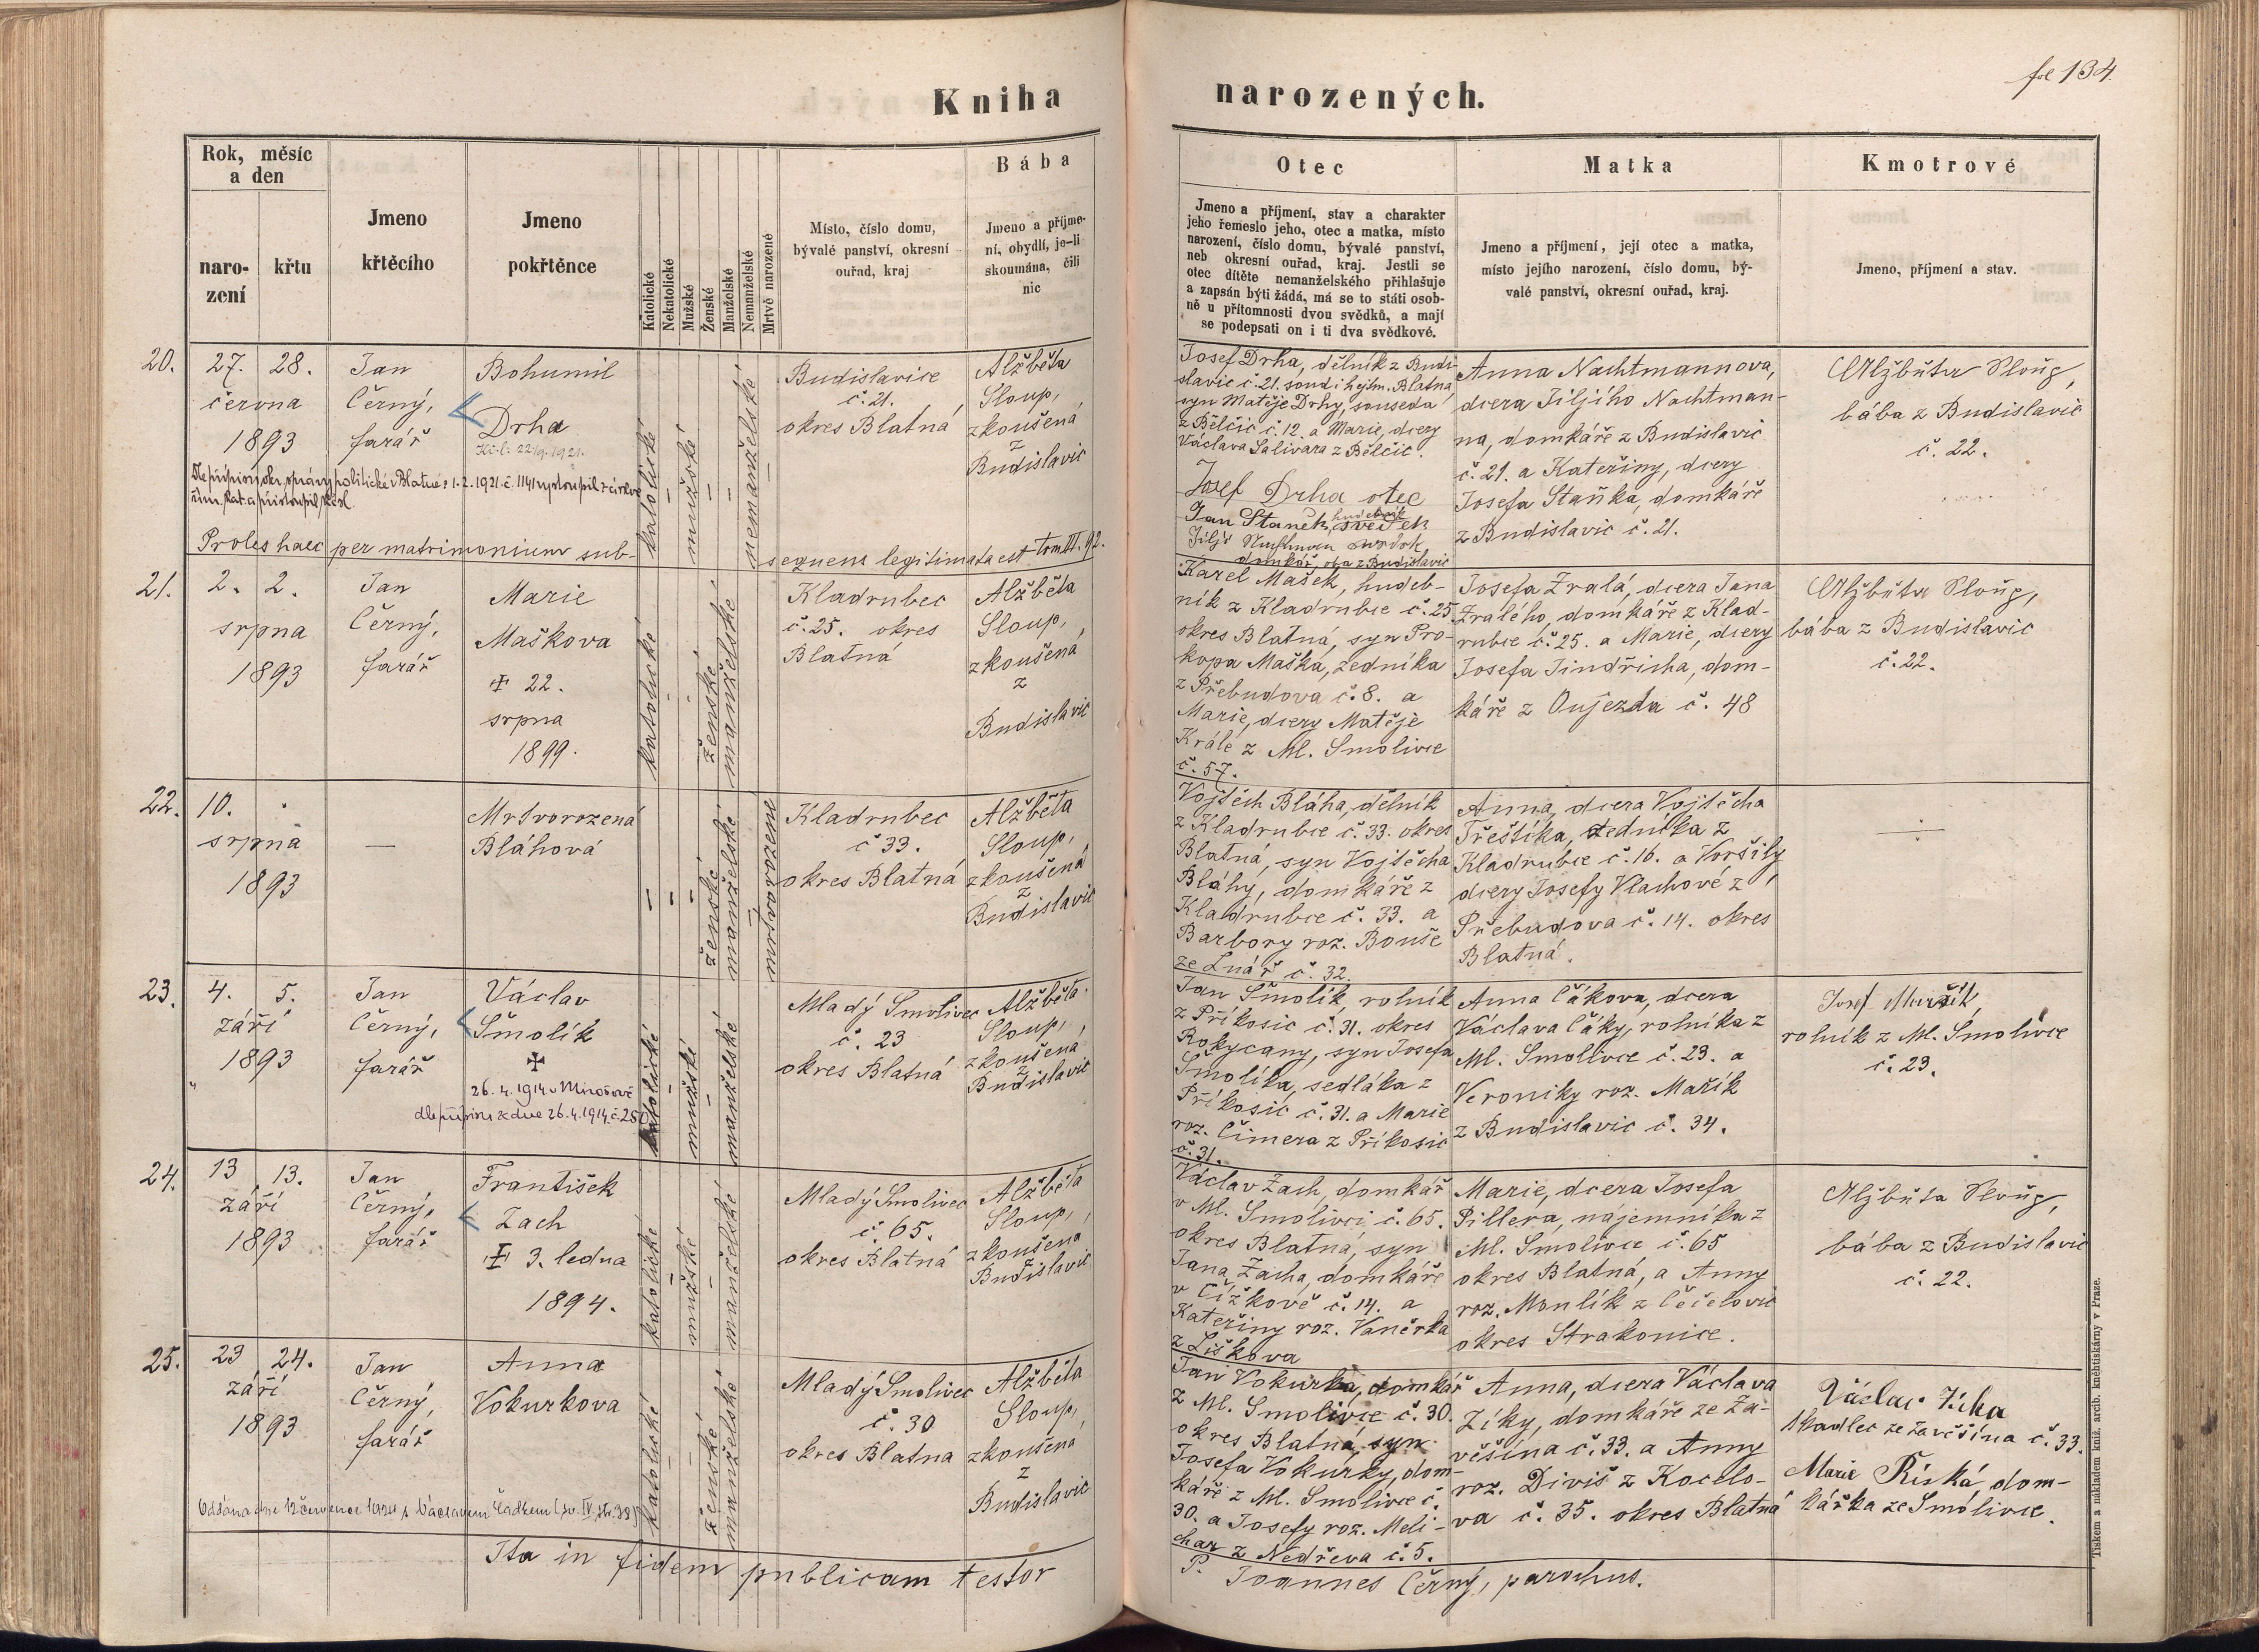 fol 134.
Kniha narozených.
Rok, měsíc
a den
naro-
zení
křtu
Jmeno
křtěcího
Jmeno
pokřtěnce
Katolické
Nekatolické
Mužské
Ženské
Manželské
Nemanželské
Mrtvě narozené
Místo, číslo domu,
bývalé panství, okresní
ouřad, kraj
Bába
Jmeno a příjme-
ní, obydlí, je-li
skoumána, čili
nic
Otec
Jmeno a příjmení, stav a charakter
jeho řemeslo jeho, otec a matka, místo
narození, číslo domu, bývalé panství,
neb okresní ouřad, kraj. Jestli se
otec dítěte nemanželského přihlašuje
a zapsán býti žádá, má se to státi osob-
ně u přítomnosti dvou svědků, a mají
se podepsati on i ti dva svědkové.
Matka
Jmeno a příjmení, její otec a matka,
místo jejího narození, číslo domu, bý-
valé panství, okresní ouřad, kraj.
Kmotrové
Jmeno, příjmení a stav.
20.
27. 28.
června
1893
Jan
Černý,
farář
Bohumil
Drha
katolické
mužské
nemanželské
Budislavice
č. 21.
okres Blatná
Alžběta
Sloup,
zkoušená
z
Budislavic
Josef Drha, dělník z Budi-
slavic č. 21. soud i hejtm. Blatná
syn Matěje Drhy, souseda
z Bělčic č. 12. a Marie, dcery
Václava Salivara z Bělčic.
Josef Drha otec
Jan Staněk, hudebník
svědek
domkář, oba z Budislavic
Anna Nachtmannova,
dcera Jiljího Nachtman-
na, domkáře z Budislavic
č. 21. a Kateřiny, dcery
Josefa Staňka, domkáře
z Budislavic č. 21.
Alžběta Sloup,
bába z Budislavic
č. 22.
Dle přípisu okr. správy politické v Blatné z 1.2.1921 č. 1141 vystoupil z církve
řím. kat. a přistoupil
Proles haec per matrimonium sub-
sequens legitimata est tom III. 92.
21.
2. 2.
srpna
1893
Jan
Černý,
farář
Marie
Maškova
‡ 22.
srpna
1899.
katolické
ženské
manželské
Kladrubec
č. 25. okres
Blatná
Alžběta
Sloup,
zkoušena
z
Budislavic
Karel Mašek, hudeb-
ník z Kladrubce č. 25
okres Blatná, syn Pro-
kopa Maška, zedníka
z Přebudova č. 8. a
Marie, dcery Matěje
Krále z Ml. Smolivce
č. 57.
Josefa Zralá, dcera Jana
Zralého, domkáře z Klad-
rubce č. 25. a Marie, dcery
Josefa Jindřicha, dom-
káře z Oujezda č. 48
Alžběta Sloup,
bába z Budislavic
č. 22.
22.
10.
srpna
1893
—
Mrtvorozená
Bláhová
ženské
manželské
mrtvorozené
Kladrubec
č 33.
okres Blatná
Alžběta
Sloup,
zkoušená
z
Budislavic
Vojtěch Bláha, dělník
z Kladrubce č. 33. okres
Blatná, syn Vojtěcha
Bláhy, domkáře z
Kladrubce č. 33. a
Barbory roz. Bouše
ze Lnář č. 32.
Anna, dcera Vojtěcha
Třeštíka, zedníka z
Kladrubce č. 16. a Voršily
dcery Josefy Vlachové z
Přebudova č. 14. okres
Blatná.
23.
4. 5.
září
1893
Jan
Černý,
farář
Václav
Šmolík
‡
26. 4. 1914 v Mirošově
dle přípisu z dne 26. 4. 1914 č. 250
katolické
mužské
manželské
Mladý Smolivec
č. 23
okres Blatná
Alžběta
Sloup,
zkoušena
z
Budislavic
Jan Šmolík rolník
z Příkosic č. 31. okres
Rokycany, syn Josefa
Šmolíka, sedláka z
Příkosic č. 31. a Marie
roz. Čimera z Příkosic
č. 31.
Anna Čákova, dcera
Václava Čáky, rolníka z
Ml. Smolivce č. 23. a
Veroniky roz. Mařík
z Budislavic č. 34.
Josef Mařík,
rolník z Ml. Smolivce
č. 23.
24.
13 13.
září
1893
Jan
Černý,
farář
František
Zach
‡ 3. ledna
1894.
katolické
mužské
manželské
Mladý Smolivec
č. 65.
okres Blatná
Alžběta
Sloup,
zkoušena
z
Budislavic
Václav Zach, domkář
v Ml. Smolivci č. 65.
okres Blatná, syn
Jana Zacha, domkáře
v Čížkově č. 14. a
Kateřiny roz. Vaněrka
z Liškova
Marie, dcera Josefa
Pillera, nájemníka z
Ml. Smolivce č. 65
okres Blatná, a Anny
roz. Monlík z Čečelovic
okres Strakonice.
Alžběta Sloup,
bába z Budislavic
č. 22.
25.
23 24.
září
1893
Jan
Černý,
farář
Anna
Vokurkova
katolické
ženské
manželské
Mladý Smolivec
č. 30
okres Blatna
Alžběta
Sloup,
zkoušena
z
Budislavic
Jan Vokurka, domkář
z Ml. Smolivce č. 30.
okres Blatná, syn
Josefa Vokurky, dom-
káře z Ml. Smolivce č.
30. a Josefy roz. Meli-
char z Nedřeva č. 5.
Anna, dcera Václava
Zíky, domkáře ze Za-
věšína č. 33. a Anny
roz. Diviš z Kocelo-
va č. 35. okres Blatná
Václav Zíka
tkadlec ze Závěšína č. 33.
Marie Říská, dom-
kářka ze Smolivce.
Oddána dne 12 července 1924 s Václavem Čadkem (sv. IV. str. 38)
Ita in fidem publicam testor
P. Joannes Černý, parochus.
Tiskem a nákladem kníž. arcib. kněhtiskárny v Praze.